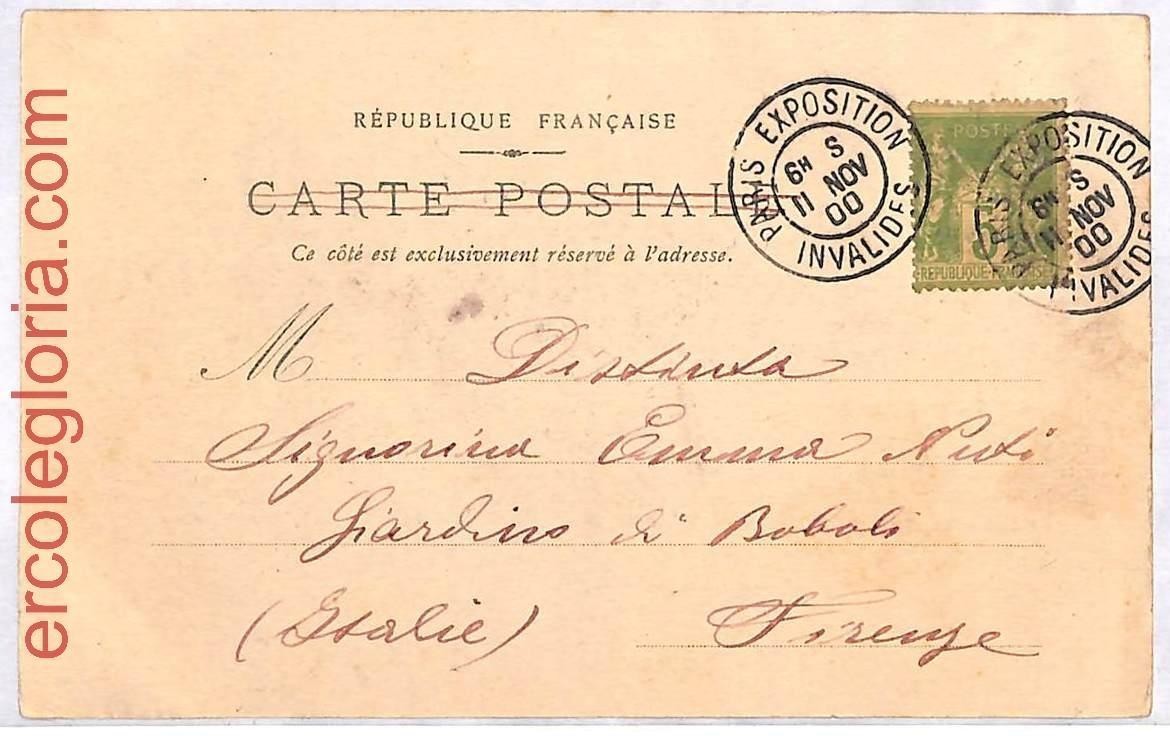 RÉPUBLIQUE FRANÇAISE
CARTE POSTALE
Ce côté est exclusivement réservé à l'adresse.
PARIS EXPOSITION
6H S
11 NOV
00
INVALIDES
POSTE
5
REPUBLIQUE FRANÇAISE
PARIS EXPOSITION
6H S
11 NOV
00
INVALIDES
M Distinta
Signorina Emma Nuti
Giardino di Boboli
(Italie) Firenze
ercolegloria.com